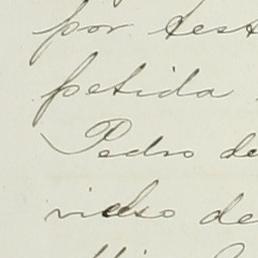 por test
petida
Pedro de
de